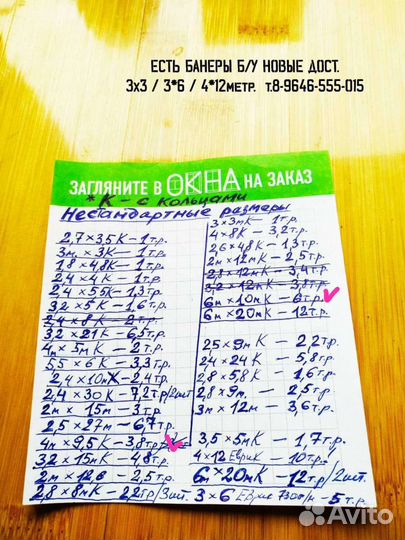 ЕСТЬ БАНЕРЫ Б/У НОВЫЕ ДОСТ.
3х3 / 3*6 / 4*12метр. т.8-9646-555-015
ЗАГЛЯНИТЕ В ОКНА НА ЗАКАЗ
*К - с кольцами
Нестандартные размеры
2,7×3,5К - 1т.р.
3м×3К - 1т.р.
1,8×4,8К - 1т.р.
2,4×4К - 1т.р.
2,4×5,5К - 1.3т.р.
3,2×5К - 1,6т.р.
2,4×8К - 2т.р.
3,2×21К - 6,5т.р.
4м×5мК - 2т.р.
5,5×6К - 3,3т.р.
2,4×10мК - 2,4т.р.
2,4×30К - 7,2т.р/2шт
2м×15м - 3т.р.
2,5×27м - 6,7т.р.
4м×9,5К - 3,8т.р.
3,2×15мК - 4,8т.р.
2м×12,6 - 2,5т.р.
2,8×8мК - 2,2тр/3шт.
3×3мК - 1т.р.
4×8К - 3,2т.р.
2,6×4,8К - 1,3т.р.
2м×12мК - 2,5т.р.
2,8×12мК - 3,4т.р.
3,2×12мК - 3,8т.р.
6м×10мК - 6т.р.
6м×20мК - 12т.р.
25×9мК - 2,2т.р.
2,4×24К - 5,8т.р.
2,8×5,8К - 1,6т.р.
2,8×9м. - 2,5т.р.
3м×12м - 3,6т.р.
3,5×5мК - 1,7т.р.
4×12 Еврик - 10т.р.
6м×20мК - 12тр/2шт
3×6 Еврик - 5т.р.
Avito